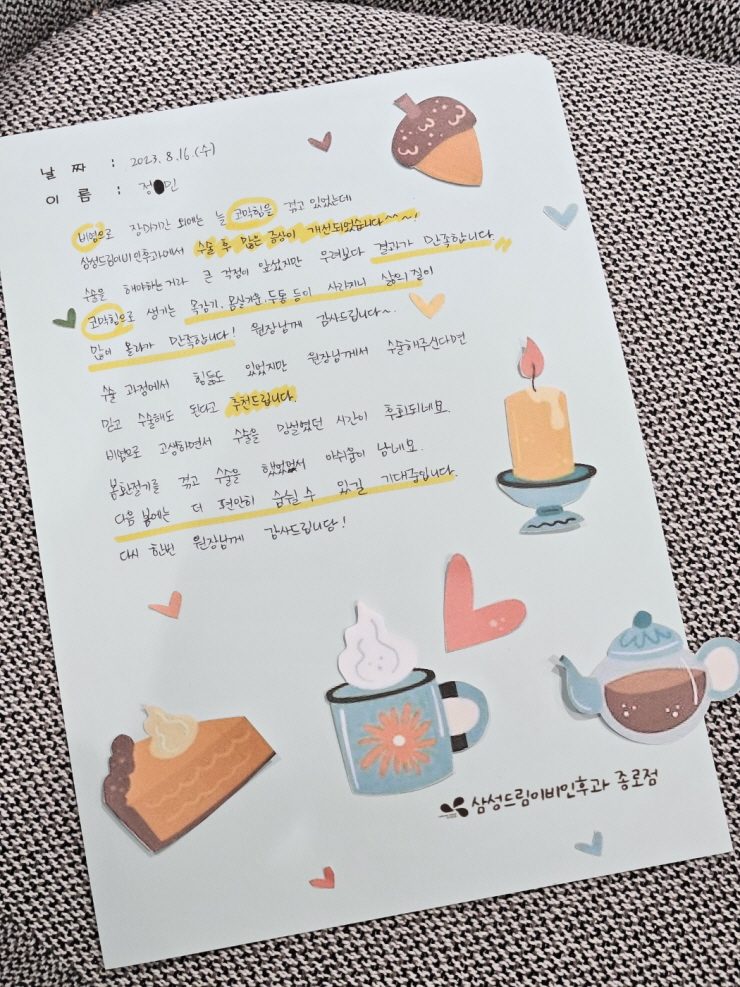 날 짜 : 2023. 8. 16. (수)
이 름 : 정 인
비염으로 장마기간 외에는 늘 코막힘을 겪고 있었는데
삼성드림이비인후과에서 수술 후 많은 증상이 개선되었습니다^^~!
수술을 해야하는거라 큰 걱정이 앞섰지만 우려보다 결과가 만족합니다
코막힘으로 생기는 목감기, 몸살기운, 두통 등이 사라지니 삶의 질이
많이 올라가 만족합니다! 원장님께 감사드립니다~.
수술 과정에서 힘듦도 있었지만 원장님께서 수술해주신다면
믿고 수술해도 된다고 추천드립니다.
비염으로 고생하면서 수술을 망설였던 시간이 후회되네요.
봄환절기를 겪고 수술을 했었어서 아쉬움이 남네요.
다음 봄에는 더 편안히 숨쉴 수 있길 기대중입니다.
다시 한번 원장님께 감사드립니당!
삼성드림이비인후과 종로점